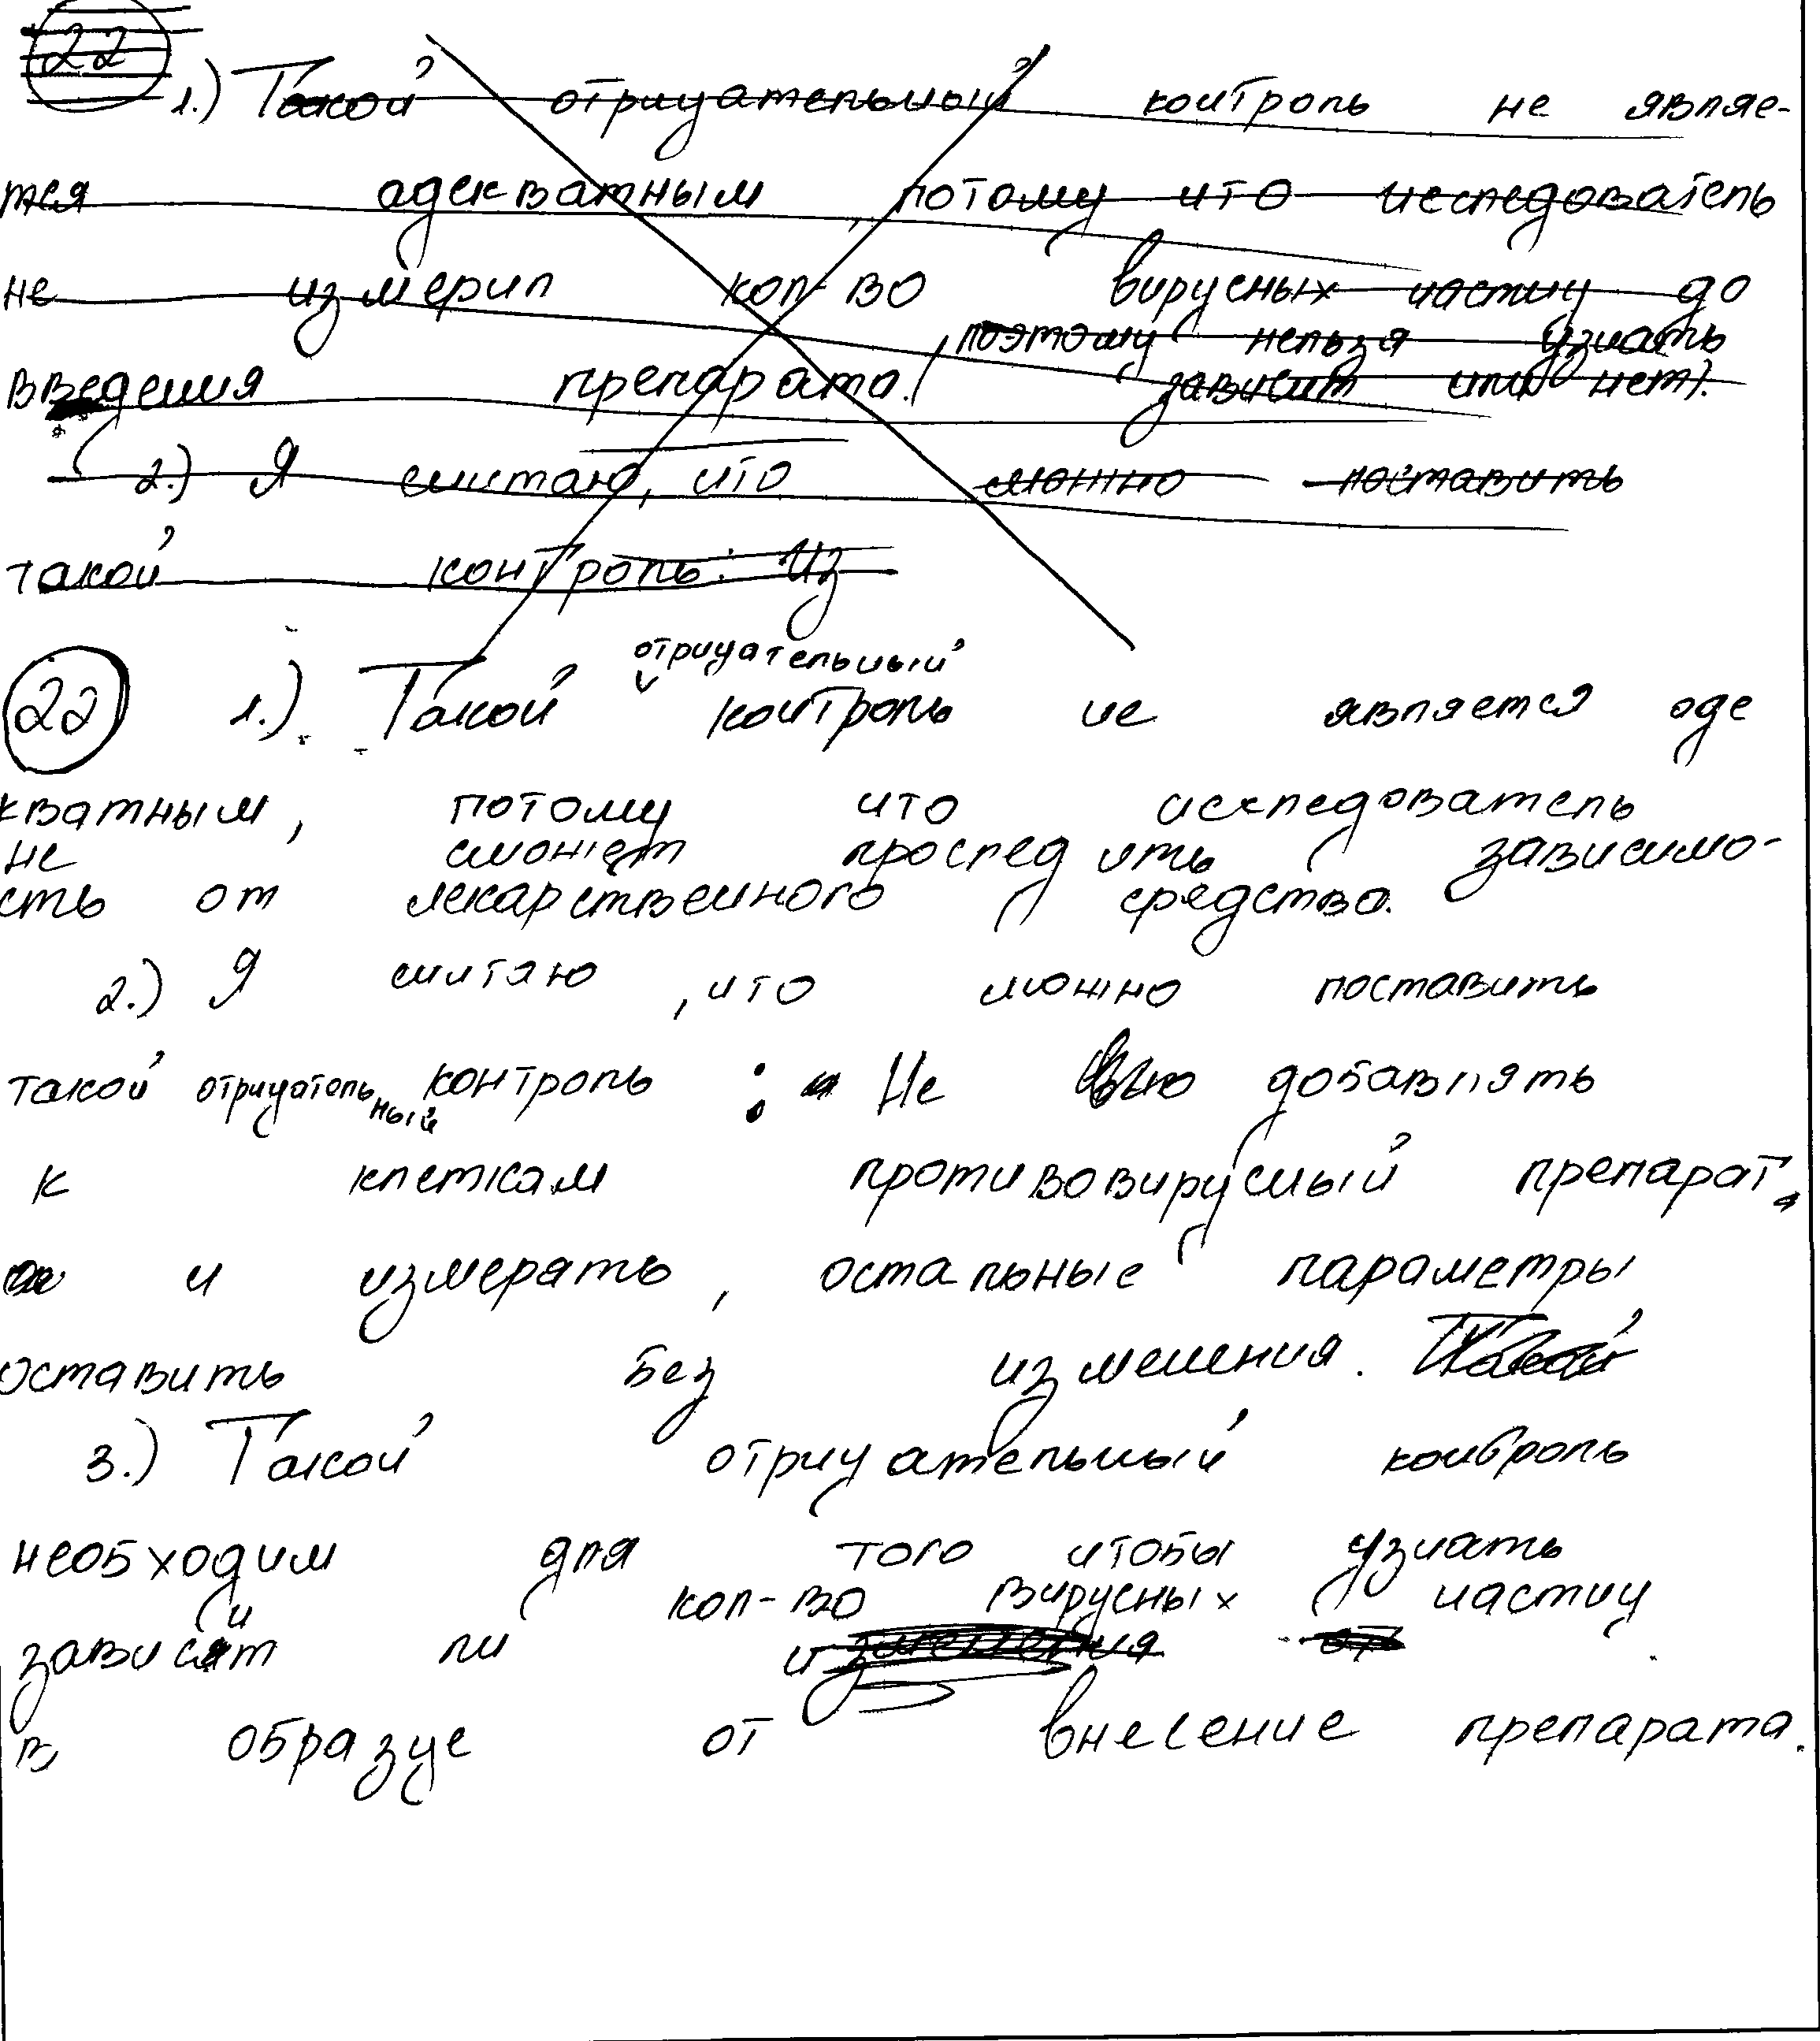 22
1.) Такой отрицательный контроль не являе-
тся адекватным, потому что исследователь
не измерил кол-во вирусных частиц до
поэтому нельзя узнать
введения препарата. зависит или нет).
2.) Я считаю, что можно поставить
такой контроль: Из
отрицательный
22 1.) Такой контроль не является аде
кватным, потому что исследователь
не сможет проследить зависимо-
сть от лекарственного средства.
2.) Я считаю, что можно поставить
такой отрицательный контроль: Не добавлять
к клеткам противовирусный препарат
и измерять, остальные параметры
оставить без изменения. Такой
3.) Такой отрицательный контроль
необходим для того чтобы узнать
кол-во вирусных частиц
зависит ли изменения от
в образце от внесение препарата.